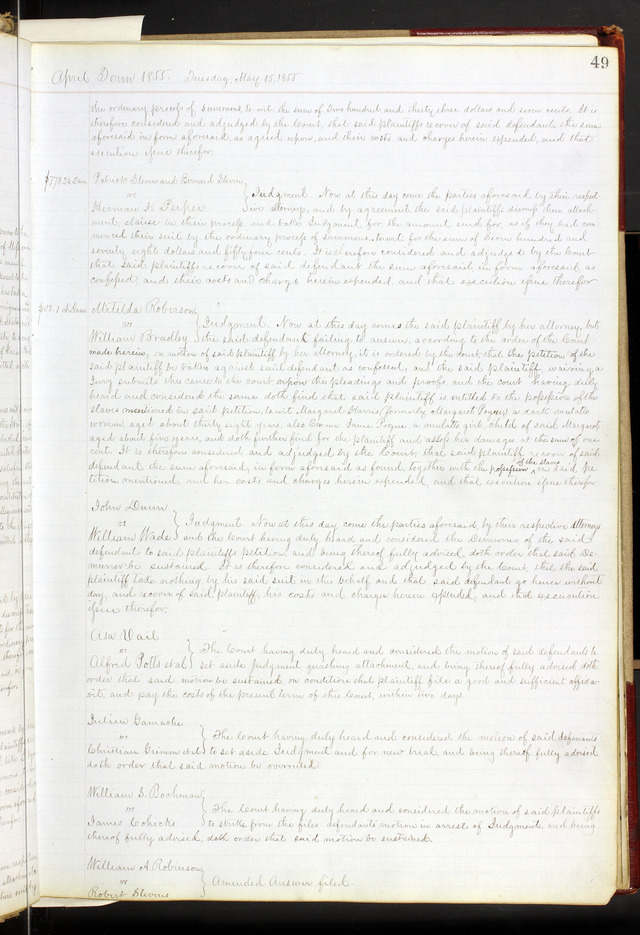 49
April Term 1855. Tuesday, May 15, 1855
the ordinary process of summons to wit the sum of Two hundred and thirty three dollars and seven cents. It is
therefore considered and adjudged by the Court, that said plaintiffs recover of said defendant the sum
aforesaid in form aforesaid, as agreed upon, and their costs and charges herein expended, and that
execution issue therefor.
$778.54 Dam Patrick and Bernard
vs
Judgment. Now at this day come the parties aforesaid by their respec
Herman H. tive attorneys, and by agreement the said plaintiffs dismiss their attach-
ment, clause in their process and take Judgment for the amount sued for, as if they had com-
menced their suit by the ordinary process of summons. To wit: for the sum of Seven hundred and
seventy eight dollars and fifty four cents. It is therefore considered and adjudged by the Court
that said plaintiffs recover of said defendant the sum aforesaid, in form aforesaid, as
confessed, and their costs and charges herein expended, and that execution issue therefor
Matilda Robinson
vs
Judgment. Now at this day comes the said plaintiff by her attorney, but
William Bradley the said defendant failing to answer, according to the order of the Court
made herein, on motion of said plaintiff by her attorney, it is ordered by the Court that the petition of the
said plaintiff be taken against said defendant as confessed, and the said plaintiff, waiving a
Jury submits this cause to the court upon the pleadings and proofs, and the court having duly
heard and considered the same doth find that said plaintiff is entitled to the possession of the
slaves mentioned in said petition, to wit, Margaret Harris (formerly Margaret) a dark mulatto
woman, aged about thirty eight years, also Emma Jane a mulatto girl, child of said Margaret
aged about five years, and doth further find for the plaintiff and assess her damages at the sum of one
cent. It is therefore considered and adjudged by the Court, that said plaintiff recover of said
defendant the sum aforesaid, in form aforesaid as found, together with the possession of the slaves in said pe
tition mentioned, and her costs and charges herein expended and that execution issue therefor
John Dunn
vs
Judgment Now at this day come the parties aforesaid by their respective attorneys
William Wade and the Court having duly heard and considered the Demurrer of the said
defendant to said plaintiffs petition and being thereof fully advised, doth order that said De-
murrer be sustained. It is therefore considered and adjudged by the Court, that the said
plaintiff take nothing by his said suit in this behalf and that said defendant go hence without
day, and recover of said plaintiff, his costs and charges herein expended, and that execution
issue therefor.
Asa Vail
vs
The Court having duly heard and considered the motion of said defendants to
Alford Potts et al set aside Judgment quashing attachment, and being thereof fully advised doth
order that said motion be sustained, on condition that plaintiff file a good and sufficient affida-
vit, and pay the costs of the present term of this Court, within two days
Julien Gamache
vs
The Court having duly heard and considered the motion of said defendants
Christian Grimm et al to set aside Judgment and for new trial, and being thereof fully advised
doth order that said motion be overruled.
William S.
vs
The Court having duly heard and considered the motion of said plaintiffs
James to strike from the files defendants motion in arrest of Judgment, and being
thereof fully advised, doth order that said motion be sustained.
William A Robinson
vs
Amended Answer filed.
Robert Stevens